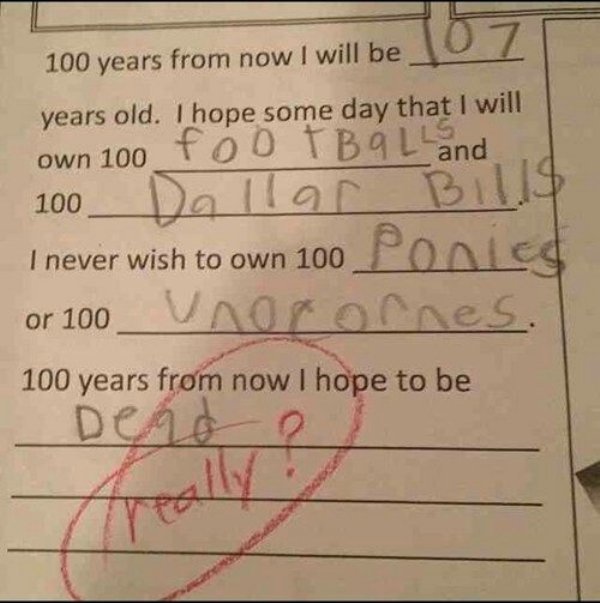 100 years from now I will be 107
years old. I hope some day that I will
own 100 fooTBalLS and
100 Dallar Bills.
I never wish to own 100 Ponies
or 100 Unorornes.
100 years from now I hope to be
Dead
really?